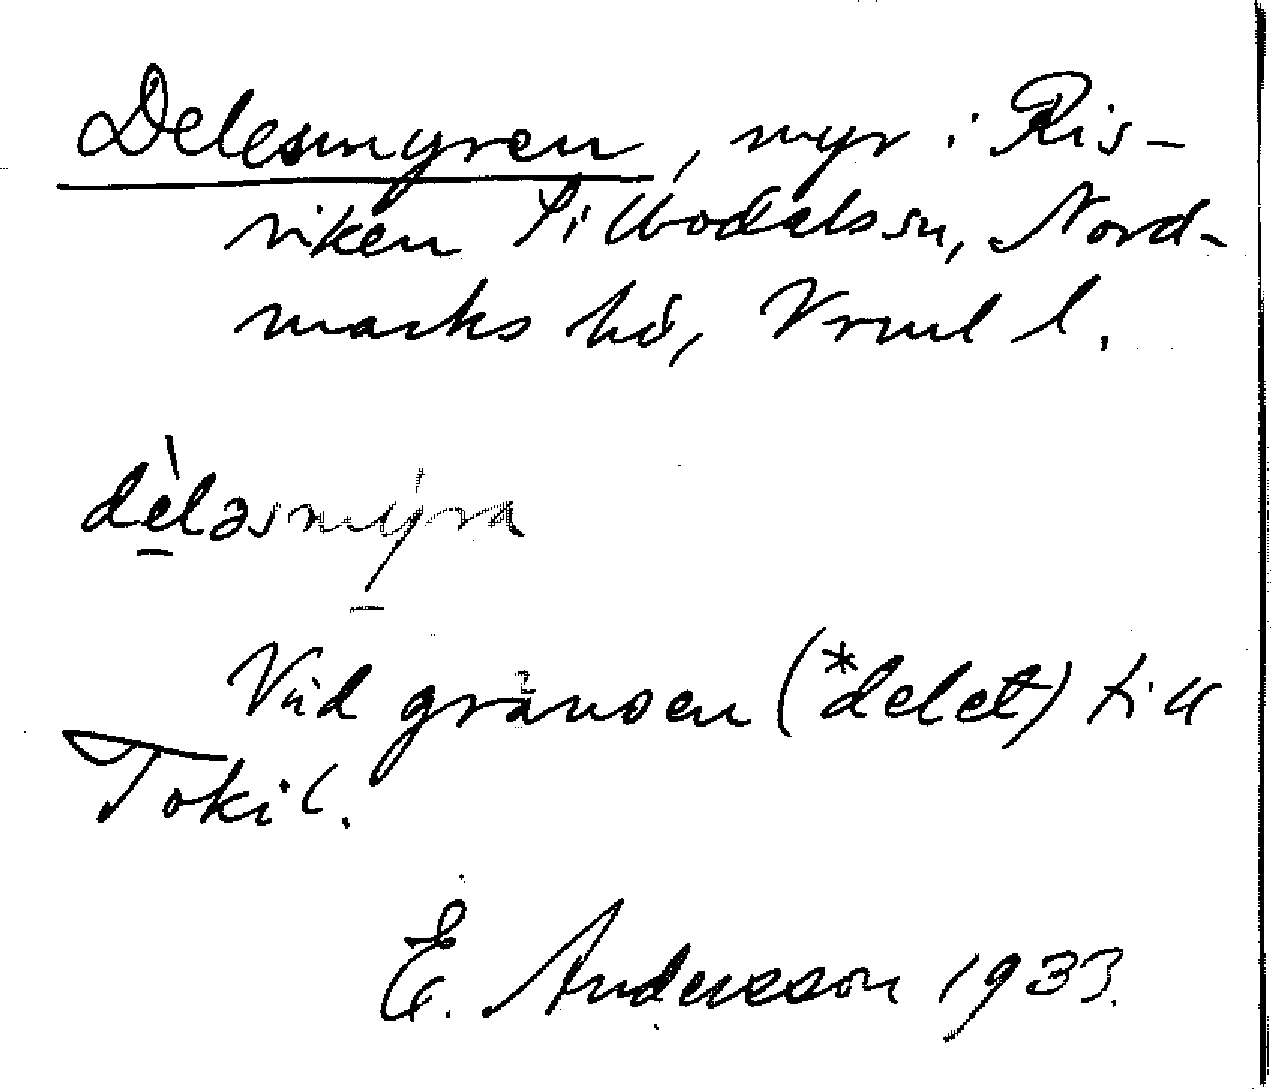 Delesmyren, myr i Ris-
viken Sillbodals sn, Nord-
marks hd, Vrml l.
dèləsmýra
Vid gränsen (*delet) till
Tokil.
E. Andersson 1933.